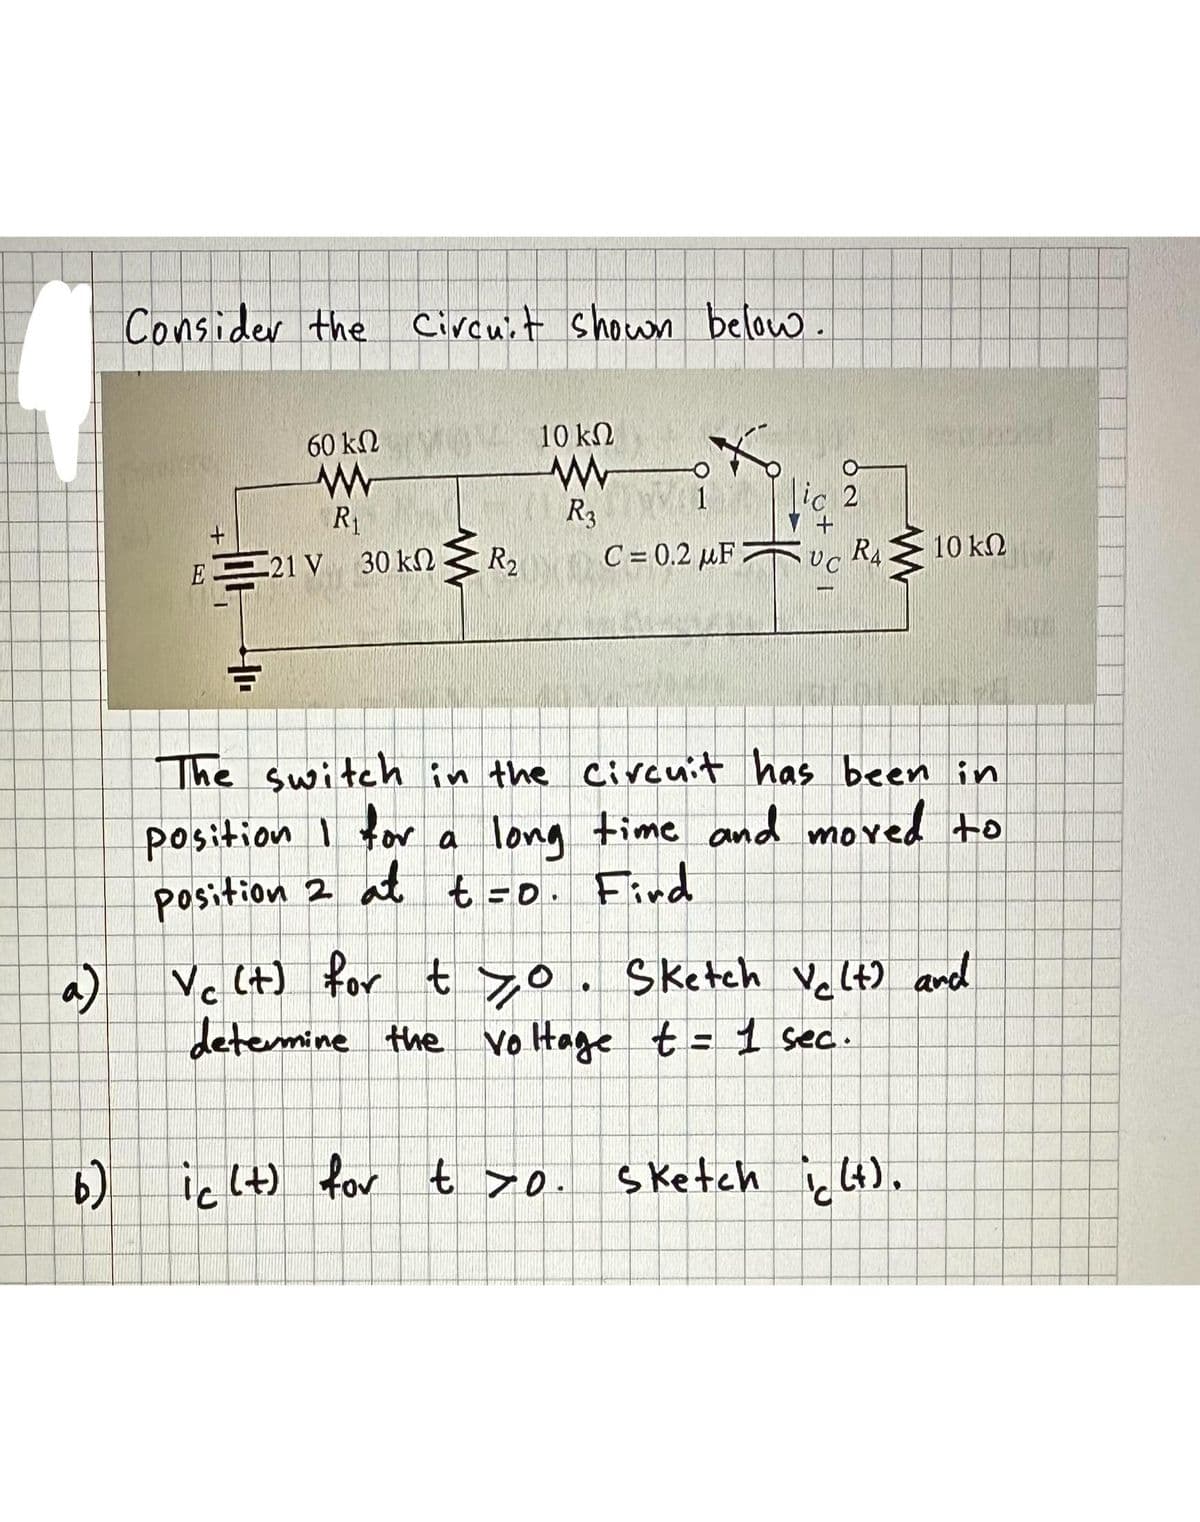 Consider the circuit shown below.
60 kΩ
10 kΩ
R1
R3
1
ic
2
+
+
E
21 V
30 kΩ
R2
C = 0.2 μF
υC
R4
10 kΩ
-
-
The switch in the circuit has been in
position 1 for a long time and moved to
position 2 at t = 0. Find
a) Vc (t) for t ⩾ 0. Sketch Vc(t) and
determine the voltage t = 1 sec.
b) ic (t) for t > 0. sketch ic(t).